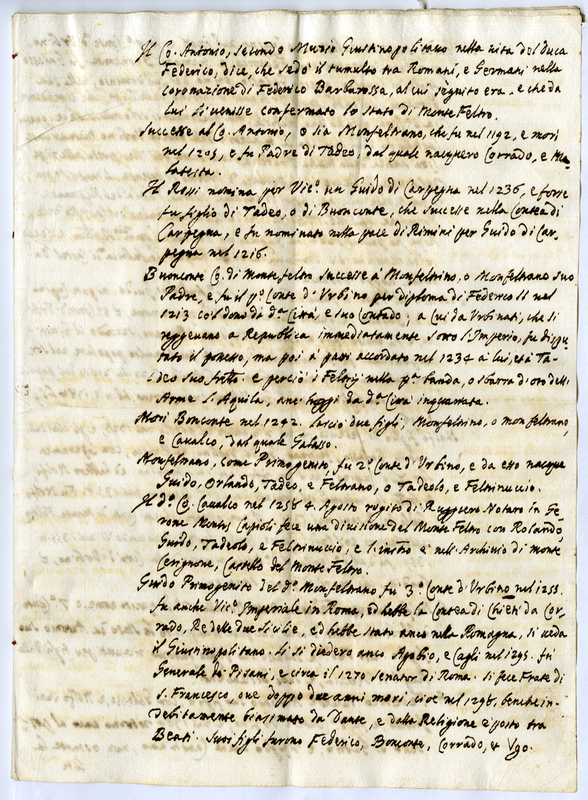 Il Co. Antonio, secondo Muzio Giustinopolitano nella vita del Duca
Federico, dice, che sedò il tumulto tra Romani, e Germani nella
coronazione di Federico Barbarossa, al cui seguito era. e che da
lui li venisse confermato lo stato di Monte Feltro.
Successe al Co. Antonio, o sia Monfeltrano, che fu nel 1192, e morì
nel 1205, e fu Padre di Tadeo, dal quale nacquero Corrado, e Ma-
latesta.
Il Rossi nomina per Vic.o un Guido di Carpegna nel 1236, e forse
fu figlio di Tadeo, o di Buonconte, che successe nella Contea di
Carpegna, e fu nominato nella pace di Rimini per Guido di Car-
pegna nel 1216.
Buonconte Co. di Monte feltro successe à Monfeltrino, o Monfeltrano suo
Padre, e fu il p.o Conte d'Urbino per diploma di Federico II nel
1213 col dono di d.a Città, e suo Contado; a cui da Urbinati, che si
reggevano a Republica immediatamente sotto l'Imperio, fu dispu-
tato il possesso, ma poi à patti accordato nel 1234 à lui, et à Ta-
deo suo frãtto. e perciò i Feltrij nella p.a banda, o sbarra d'oro dell'
Arme l'Aquila, anc'hoggi da d.a Città inquartata.
Morì Bonconte nel 1242. lasciò due figli, Monfeltrino, o monfeltrano,
e Cavalco, dal quale Galasso.
Monfeltrano, come Primogenito, fu 2.o Conte d'Urbino, e da esso nacque
Guido, Orlando, Tadeo, e Feltrano, o Tadeolo, e Feltrinuccio.
Il d.o Co. Cavalco nel 1256 4. Agosto rogito di Ruggiero Notaro in Ge-
rone Montis Capioli fece una divisione del Monte Feltro con Rolando,
Guido, Tadeolo, e Feltrinuccio, e l'instro è nell'Archivio di monte
Cerignone, Castello del Monte Feltro.
Guido Primogenito del d.o Monfeltrano fu 3.o Conte d'Urbino nel 1255.
fu anche Vic.o Imperiale in Roma, ed hebbe la Contea di Chieti da Cor-
rado, Re delle due Sicilie, ed hebbe stato anco nella Romagna, si veda
il Giustinopolitano. Li si diedero anco Agobio, e Cagli nel 1295. fu
Generale de Pisani, e circa il 1270 senator di Roma. Si fece Frate di
S. Francesco, oue doppo due anni morì, cioè nel 1296, benche in-
debitamente biasimato da Dante, e dalla Religione è posto tra
Beati. Suoi figli furono Federico, Bonconte, Corrado, et Ugo.